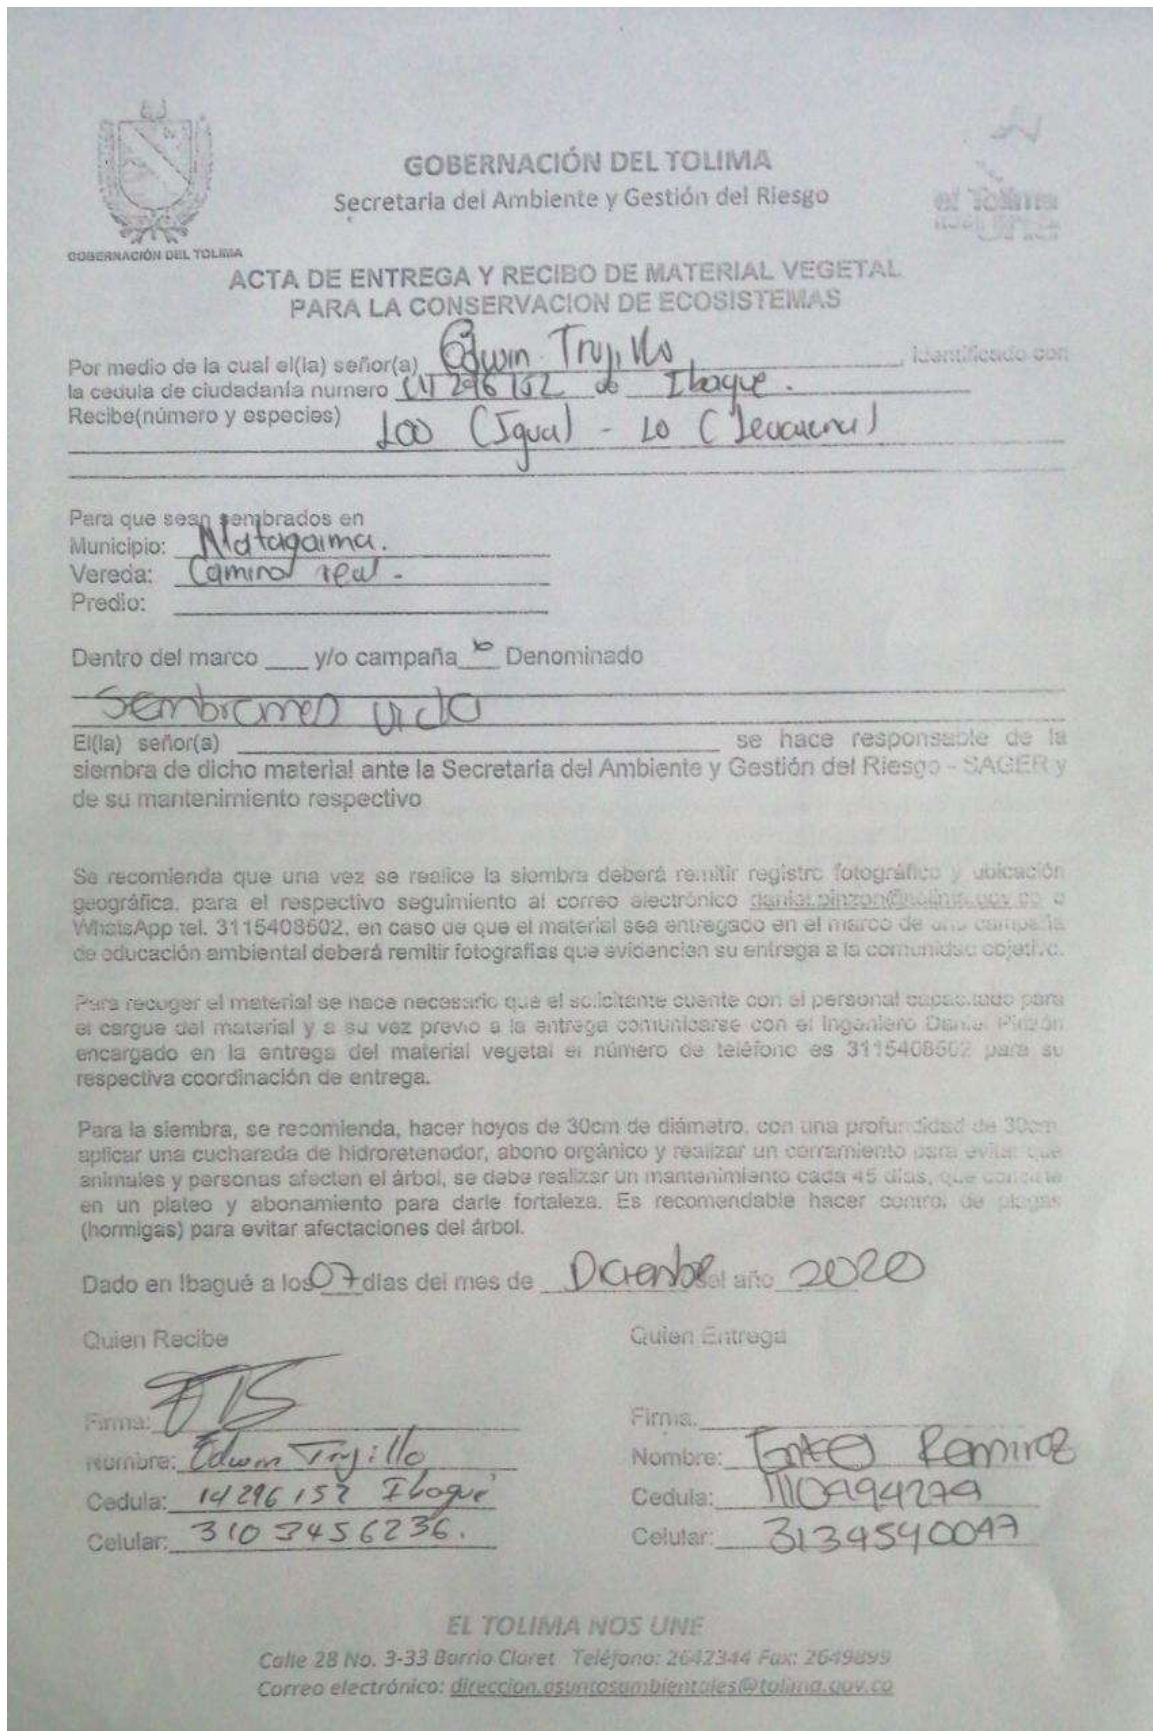 GOBERNACIÓN DEL TOLIMA
Secretaria del Ambiente y Gestión del Riesgo
el Tolima
GOBERNACIÓN DEL TOLIMA
ACTA DE ENTREGA Y RECIBO DE MATERIAL VEGETAL
PARA LA CONSERVACION DE ECOSISTEMAS
Por medio de la cual el(la) señor(a) Edwin Trujillo, identificado con
la cedula de ciudadanía numero 14 296 152 de Ibague.
Recibe(número y especies) 100 (Igua) - 10 (
Para que sean sembrados en
Municipio: Natagaima.
Vereda: Camino real -
Predio:
Dentro del marco ___ y/o campaña ___ Denominado
Sembramos vida
El(la) señor(a) ___ se hace responsable de la
siembra de dicho material ante la Secretaria del Ambiente y Gestión del Riesgo - SAGER y
de su mantenimiento respectivo
Se recomienda que una vez se realice la siembra deberá remitir registro fotográfico y ubicación
geográfica, para el respectivo seguimiento al correo electrónico daniel.pinzon@tolima.gov.co o
WhatsApp tel. 3115408502, en caso de que el material sea entregado en el marco de una campaña
de educación ambiental deberá remitir fotografías que evidencien su entrega a la comunidad objetivo.
Para recoger el material se hace necesario que el solicitante cuente con el personal capacitado para
el cargue del material y a su vez previo a la entrega comunicarse con el Ingeniero Daniel Pinzón
encargado en la entrega del material vegetal el número de teléfono es 3115408502 para su
respectiva coordinación de entrega.
Para la siembra, se recomienda, hacer hoyos de 30cm de diámetro, con una profundidad de 30cm
aplicar una cucharada de hidroretenedor, abono orgánico y realizar un cerramiento para evitar que
animales y personas afecten el árbol, se debe realizar un mantenimiento cada 45 días, que consiste
en un plateo y abonamiento para darle fortaleza. Es recomendable hacer control de plagas
(hormigas) para evitar afectaciones del árbol.
Dado en Ibagué a los 07 días del mes de Diciembre del año 2020
Quien Recibe Quien Entrega
Firma: Firma.
Nombre: Edwin Trujillo Nombre: Ramirez
Cedula: 14 296 152 Ibagué Cedula: 1110494279
Celular: 310 3456236. Celular: 3134540047
EL TOLIMA NOS UNE
Calle 28 No. 3-33 Barrio Claret Teléfono: 2642344 Fax: 2649899
Correo electrónico: direccion.asuntosambientales@tolima.gov.co